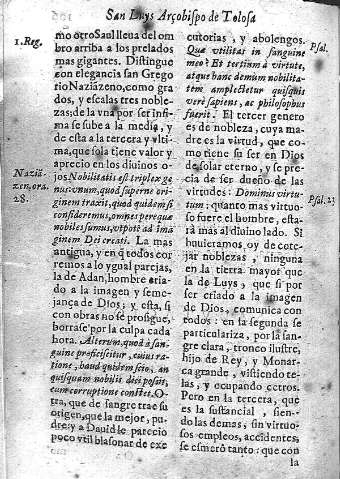 San Luys Arçobispo de Tolosa
1. Reg.
mo otro Saul lleua del om
bro arriba a los prelados
mas gigantes. Distingue
con elegancia san Grego
rio Naziãzeno, como gra
dos, y escalas tres noble-
zas; de la vna por ser infi-
ma se sube a la media, y
de esta a la tercera y vlti
ma, que sola tiene valor y
aprecio en los diuinos o-
Naziã-
zen, ora.
28.
jos Nobilitatis est triplex ge
nus vnum, quod superne ori
ginem traxit, quod quidem si
consideremus, omnes pereque
nobiles sumus, vtpotè ad ima
ginem Dei creati. La mas
antigua, y en q̃ todos cor
remos a lo ygual parejas,
la de Adan, hombre criado
a la imagen y seme-
jança de Dios; y esta, si
con obras no se prosigue,
borrase por la culpa cada
hora. Alterum, quod à san-
guine proficiscitur, cuius ra-
tione, haud quidem scio, an
quisquam nobilis dici possit,
cum corruptione constet. O-
tra, que de sangre trae su
origen, que la mejor, pu-
dre: y a Dauid le parecio
poco vtil blasonar de exe
cutorias, y abolengos.
Psal.
Quæ vtilitas in sanguine
meo? Et tertium à virtute,
atque hanc demum nobilita-
tem amplectetur quisquis
verè sapiens, ac philosophus
fuerit. El tercer genero
es de nobleza, cuya ma-
dre es la virtud, que co-
mo tiene su ser en Dios
de solar eterno, y se pre-
cia de ser dueño de las
virtudes: Dominus virtu-
Psal. 23
tum: quanto mas virtuo-
so fuere el hombre, esta-
rà mas al diuino lado. Si
huuieramos oy de cote-
jar noblezas, ninguna
en la tierra mayor que
la de Luys, que si por
ser criado a la imagen
de Dios, comunica con
todos: en la segunda se
particulariza, por la san-
gre clara, tronco ilustre,
hijo de Rey, y Monar-
ca grande, vistiendo te-
las, y ocupando cetros.
Pero en la tercera, que
es la sustancial, sien-
do las demas, sin virtuo-
sos empleos, accidentes,
se esmerò tanto: que con
la